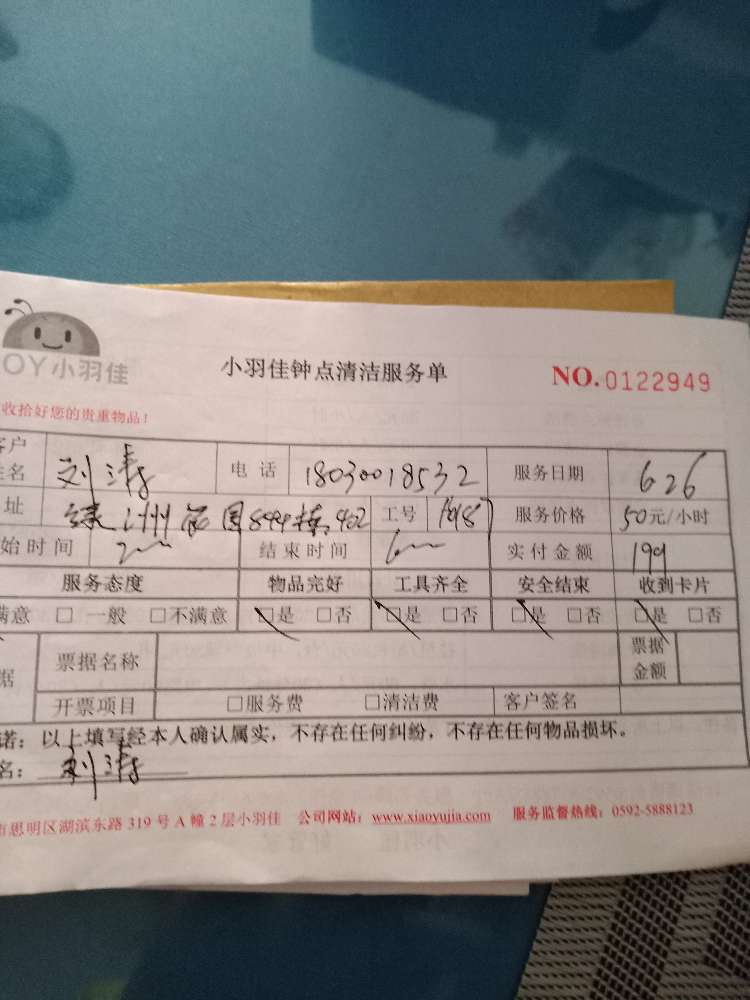 OY小羽佳 小羽佳钟点清洁服务单 NO.0122949
收拾好您的贵重物品！
客户姓名 刘涛 电话 18030018532 服务日期 6.26
址 绿洲花园 402 工号 服务价格 50元/小时
始时间 结束时间 实付金额 199
服务态度 物品完好 工具齐全 安全结束 收到卡片
满意 □一般 □不满意 □是 □否 □是 □否 □是 □否 □是 □否
据 票据名称 票据金额
开票项目 □服务费 □清洁费 客户签名
诺：以上填写经本人确认属实，不存在任何纠纷，不存在任何物品损坏。
名：刘涛
市思明区湖滨东路 319 号 A 幢 2 层小羽佳 公司网站：www.xiaoyujia.com 服务监督热线：0592-5888123